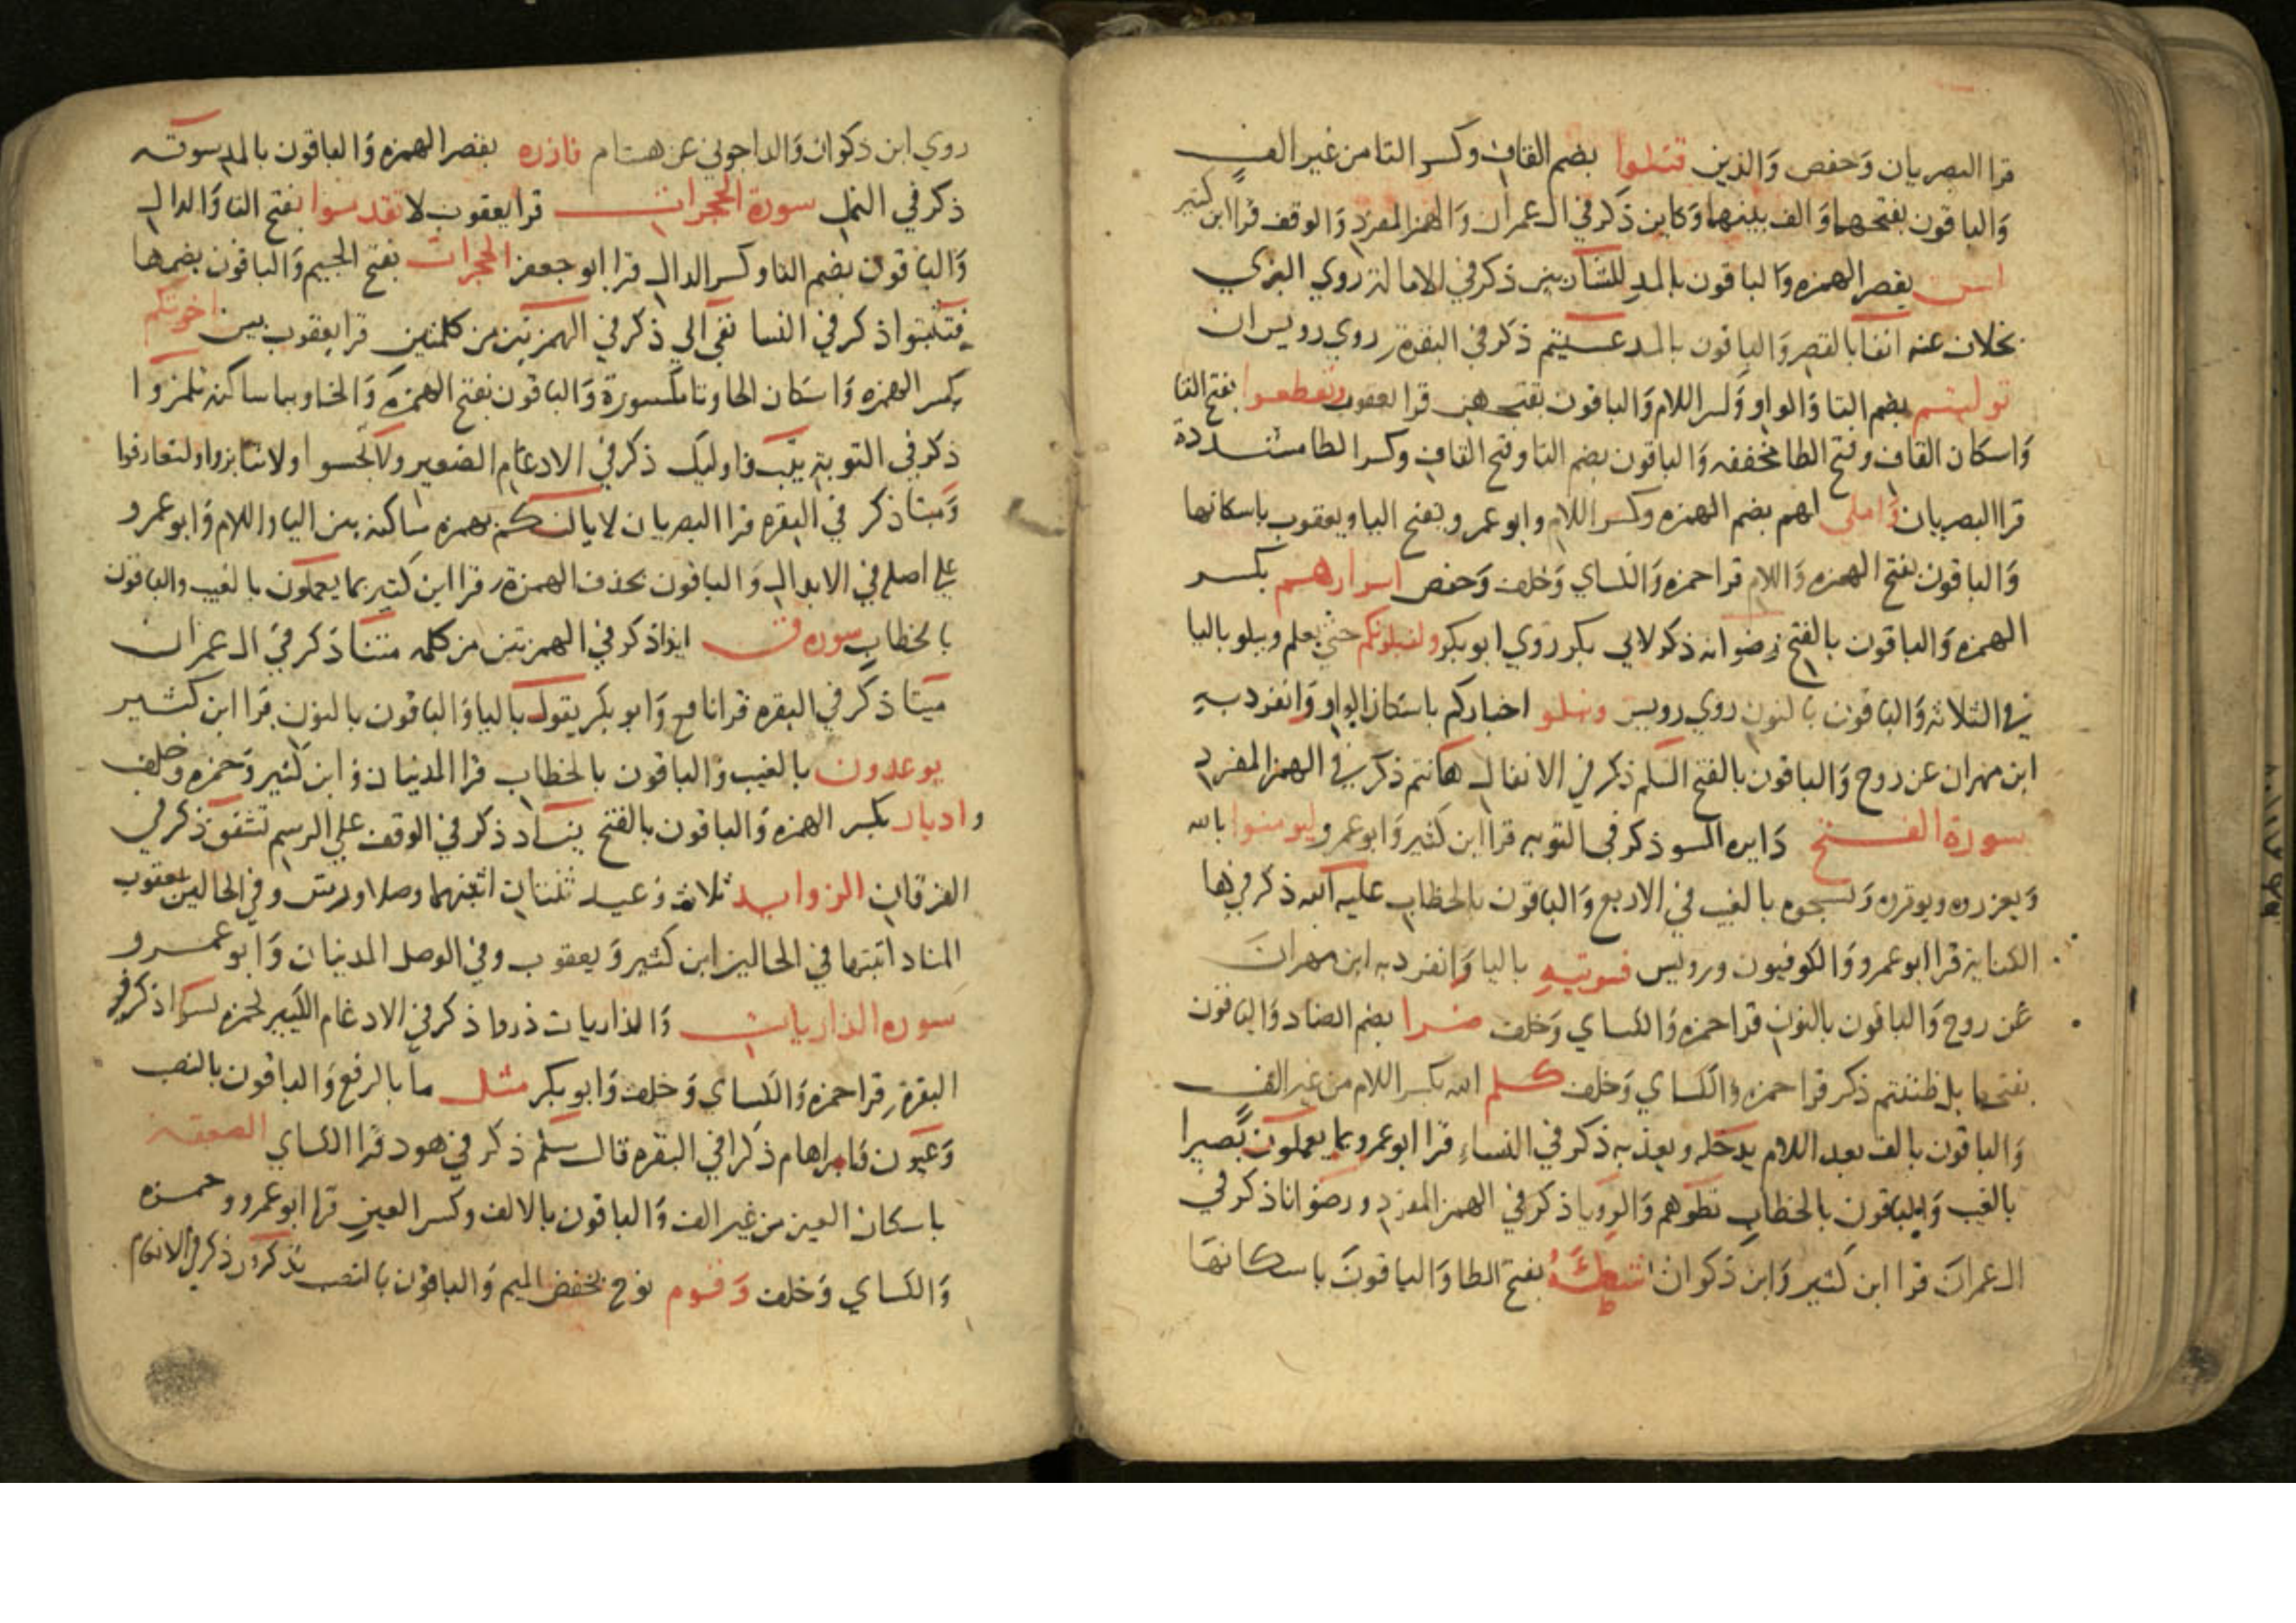 قرا البصريان وحفص والذين قتلوا بضم القاف وكسر التا من غير الف
والباقون بفتحهما والف بينهما وكاين ذكر في ال عمران والهمز المفرد والوقف قرا ابن كثير
اسن بقصر الهمزه والباقون بالمد للشاربين ذكر في الامالة روي البزي
بخلاف عنه انفا بالقصر والباقون بالمد عسيتم ذكر في البقرة روي رويس ان
توليتم بضم التا والواو وكسر اللام والباقون بفتحهن قرا يعقوب وتقطعوا بفتح التا
واسكان القاف وفتح الطا مخففه والباقون بضم التا وفتح القاف وكسر الطا مشددة
قرا البصريان واملي لهم بضم الهمزه وكسر اللام وابو عمرو بفتح اليا ويعقوب باسكانها
والباقون بفتح الهمزه واللام قرا حمزه والكساي وخلف وحفص اسرارهم بكسر
الهمزه والباقون بالفتح رضوانه ذكر لابي بكر روي ابو بكر ولنبلونكم حتي يعلم ويبلو باليا
في الثلاثه والباقون بالنون روي رويس ونبلو اخباركم باسكان الواو وانفرد به
ابن مهران عن روح والباقون بالفتح السلم ذكر في الانفال هانتم ذكر في الهمز المفرد
سورة الفتح دايره السو ذكر في التوبه قرا ابن كثير وابو عمرو ليومنوا بالله
ويعزروه ويوقروه ويسبحوه بالغيب في الاربع والباقون بالخطاب عليه الله ذكر في ها
الكناية قرا ابو عمرو والكوفيون ورويس فسوتيه باليا وانفرد به ابن مهران
عن روح والباقون بالنون قرا حمزه والكساي وخلف ضرا بضم الضاد والباقون
بفتحها بل ظننتم ذكر قرا حمزه والكساي وخلف كلم الله بكسر اللام من غير الف
والباقون بالف بعد اللام يدخله ويعذبه ذكر في النساء قرا ابو عمرو بما يعملون بصيرا
بالغيب والباقون بالخطاب تطوهم والرويا ذكر في الهمز المفرد ورضوانا ذكر في
ال عمران قرا ابن كثير وابن ذكوان شطئه بفتح الطا والباقون باسكانها
روي ابن ذكوان والداجوني عن هشام فازره بقصر الهمزه والباقون بالمد سوقه
ذكر في النمل سورة الحجرات قرا يعقوب لا تقدموا بفتح التا والدال
والباقون بضم التا وكسر الدال قرا ابو جعفر الحجرات بفتح الجيم والباقون بضمها
فتثبتوا ذكر في النسا تفي الي ذكر في الهمزتين من كلمتين قرا يعقوب بين اخوتكم
بكسر الهمزه واسكان الخا وتا مكسورة والباقون بفتح الهمزه والخا وبيا ساكنه تلمزوا
ذكر في التوبة يتب فاوليك ذكر في الادغام الصغير ولا تجسسوا ولا تنابزوا ولتعارفوا
وميتا ذكر في البقره قرا البصريان لا يالتكم بهمزه ساكنه بين اليا واللام وابو عمرو
علي اصله في الابدال والباقون بحذف الهمزة قرا ابن كثير بما يعملون بالغيب والباقون
بالخطاب سورة ق ايذا ذكر في الهمزتين من كلمه متنا ذكر في ال عمران
ميتا ذكر في البقره قرا نافع وابو بكر يقول باليا والباقون بالنون قرا ابن كثير
يوعدون بالغيب والباقون بالخطاب قرا المدنيان وابن كثير وحمزه وخلف
وادبار بكسر الهمزه والباقون بالفتح يناد ذكر في الوقف علي الرسم تشقق ذكر في
الفرقان الزوايد ثلاث وعيد ثنتان اثبتهما وصلا ورش وفي الحالين يعقوب
المناد اثبتها في الحالين ابن كثير ويعقوب وفي الوصل المدنيان وابو عمرو
سورة الذاريات والذاريات ذروا ذكر في الادغام الكبير لحمزه يسرا ذكر في
البقرة قرا حمزه والكساي وخلف وابو بكر مثل ما بالرفع والباقون بالنصب
وعيون وابراهام ذكرا في البقره قال سلم ذكر في هود قرا الكساي الصعقة
باسكان العين من غير الف والباقون بالالف وكسر العين قرا ابو عمرو وحمزه
والكساي وخلف وقوم نوح بخفض الميم والباقون بالنصب تذكرون ذكر في الانعام